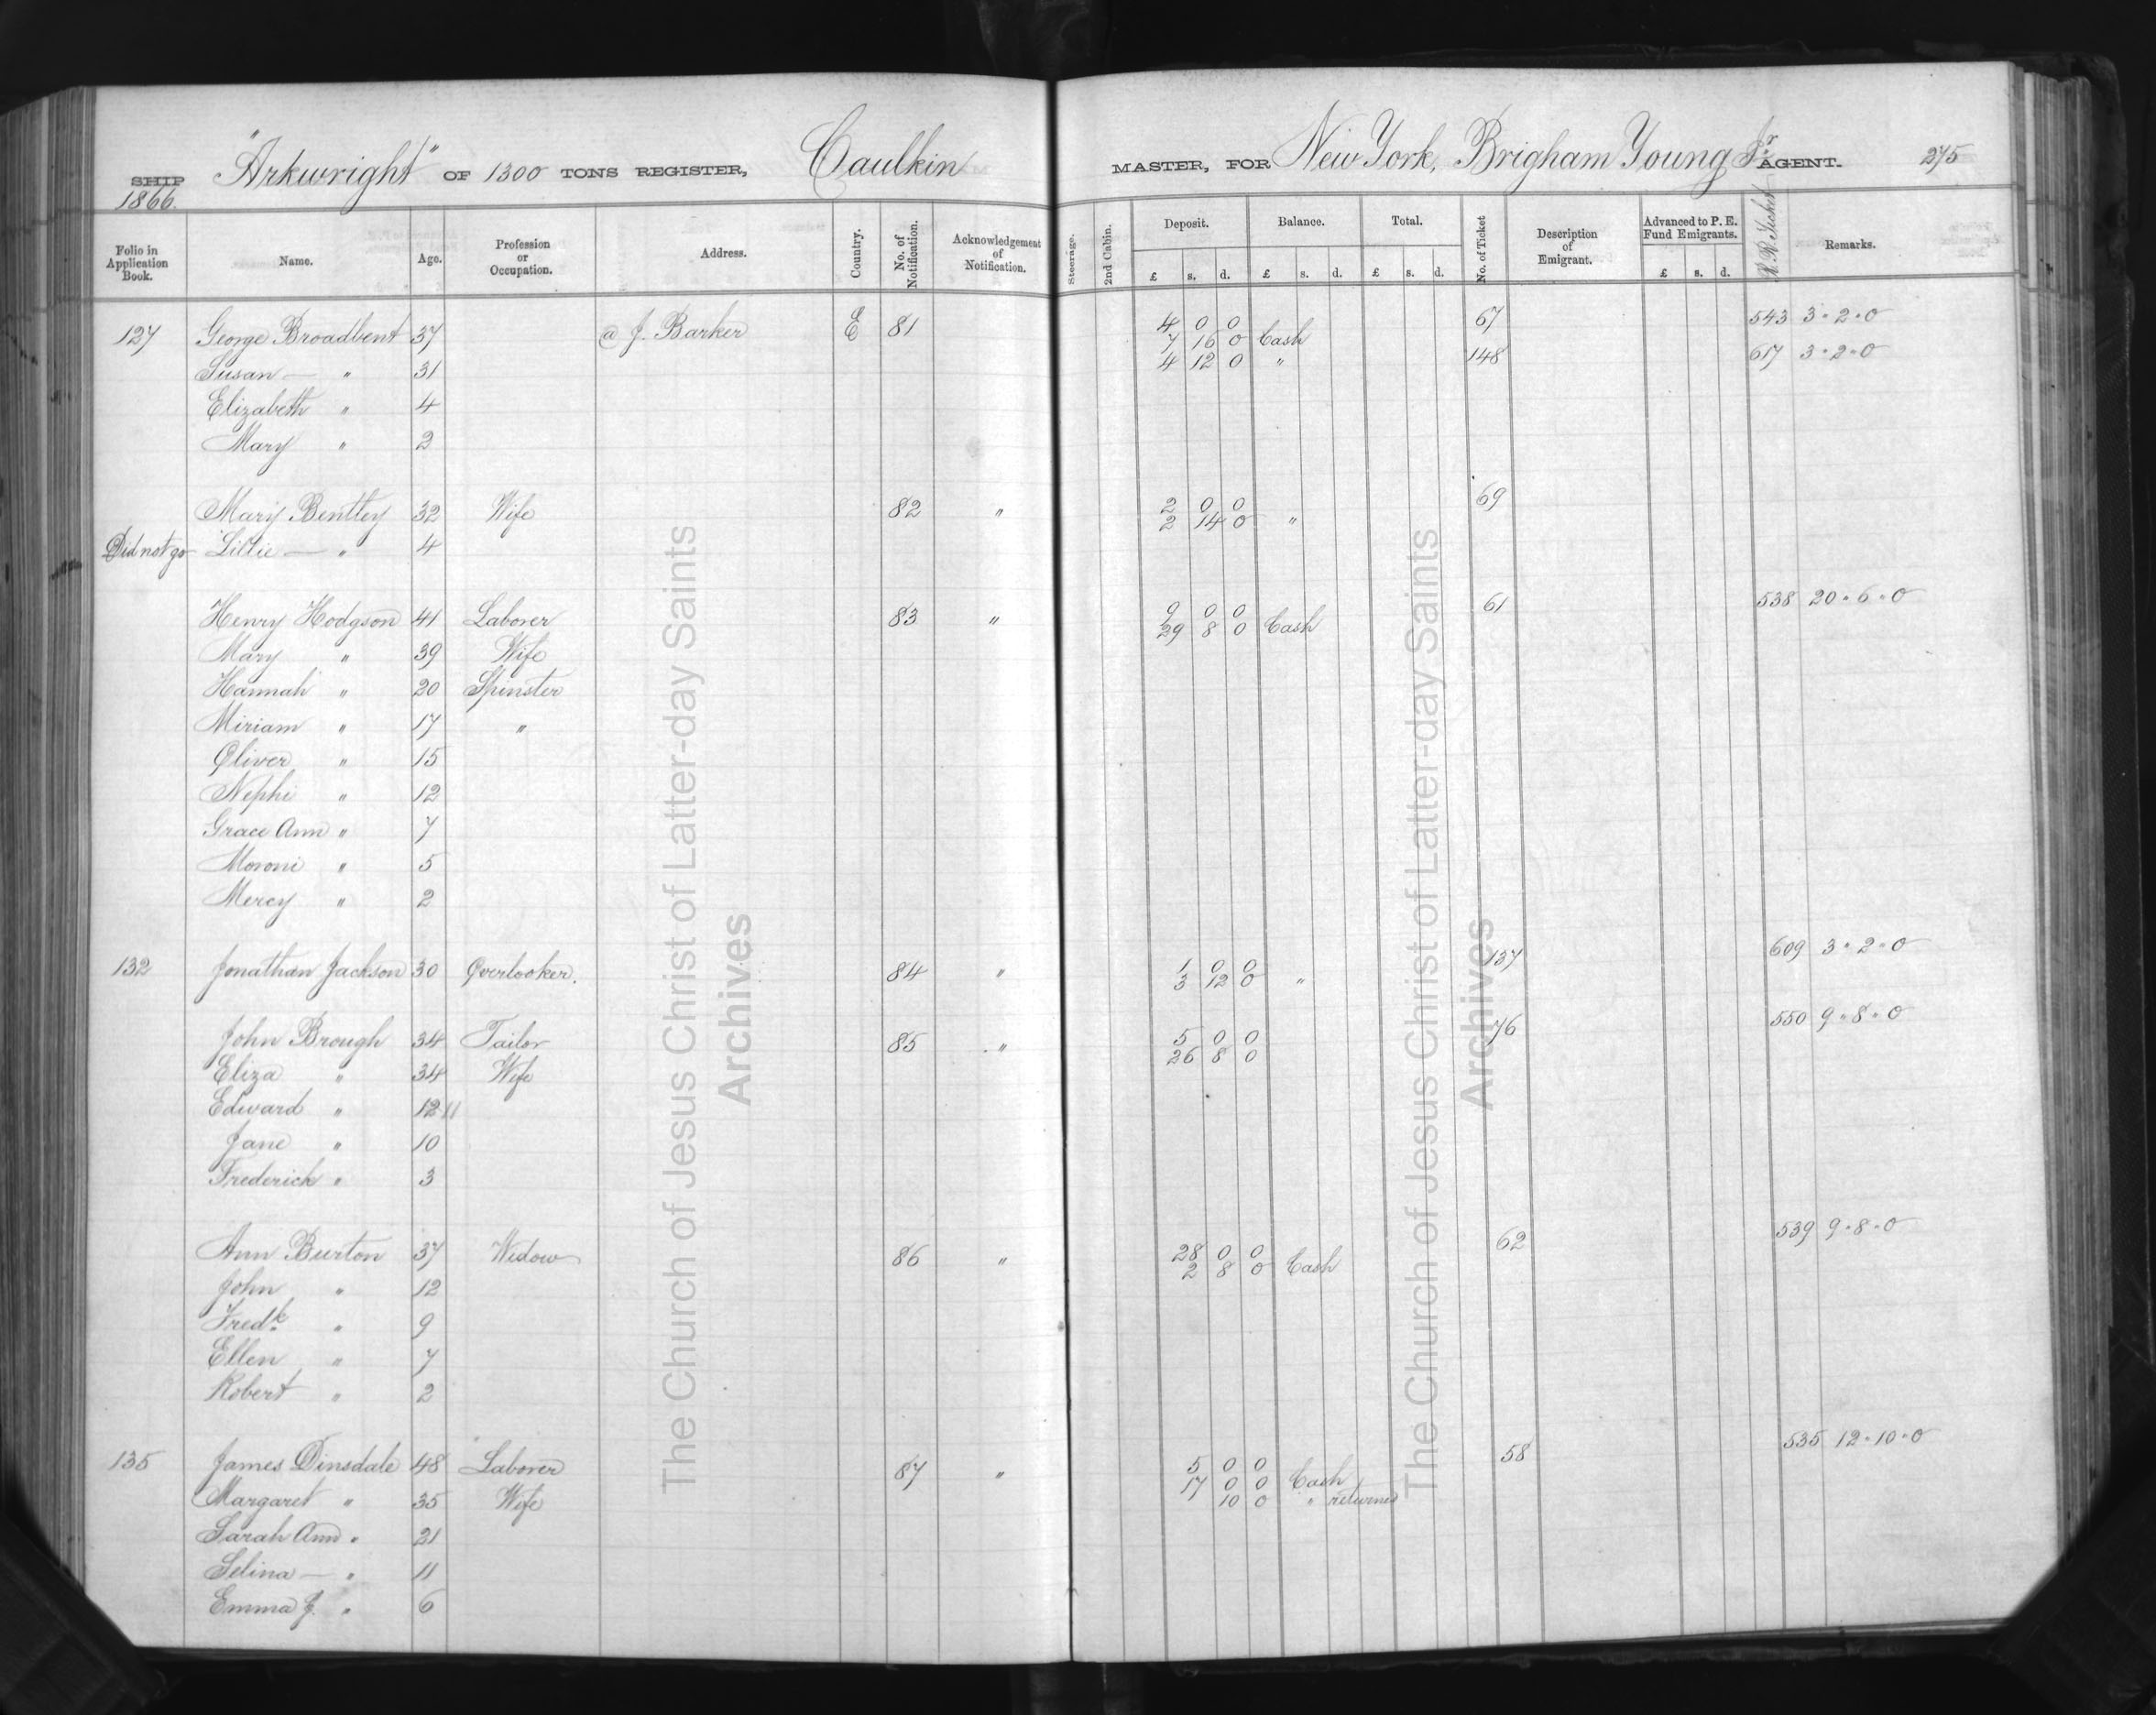 "Arkwright" OF 1300 TONS REGISTER, Caulkin MASTER, FOR New York, Brigham Young Jr AGENT. 275
SHIP
1866.
Folio in Application Book. Name. Age. Profession or Occupation. Address. Country. No. of Notification. Acknowledgement of Notification. Steerage. 2nd Cabin. Deposit. £ s. d. Balance. £ s. d. Total. £ s. d. No. of Ticket Description of Emigrant. Advanced to P. E. Fund Emigrants. £ s. d. R. R. Ticket Remarks.
127 George Broadbent 37 @ J. Barker E 81 4 0 0 67 543 3 " 2 " 0
7 16 0 Cash
Susan — " 31 4 12 0 " 148 617 3 " 2 " 0
Elizabeth " 4
Mary " 2
Mary Bentley 32 Wife 82 " 2 0 0 69
2 14 0 "
Did not go Lillie — " 4
Henry Hodgson 41 Laborer 83 " 9 0 0 61 538 20 " 6 " 0
29 8 0 Cash
Mary " 39 Wife
Hannah " 20 Spinster
Miriam " 17 "
Oliver " 15
Nephi " 12
Grace Ann " 7
Moroni " 5
Mercy " 2
132 Jonathan Jackson 30 Overlooker. 84 " 1 0 0 137 609 3 " 2 " 0
3 12 0 "
John Brough 34 Tailor 85 " 5 0 0 76 550 9 " 8 " 0
26 8 0
Eliza " 34 Wife
Edward " 12 11
Jane " 10
Frederick " 3
Ann Burton 37 Widow 86 " 28 0 0 62 539 9 " 8 " 0
2 8 0 Cash
John " 12
Fredk " 9
Ellen " 7
Robert " 2
135 James Dinsdale 48 Laborer 87 " 5 0 0 58 535 12 " 10 " 0
17 0 0 Cash
Margaret " 35 Wife 10 0 " returned
Sarah Ann " 21
Selina — " 11
Emma J. " 6
The Church of Jesus Christ of Latter-day Saints
Archives
The Church of Jesus Christ of Latter-day Saints
Archives